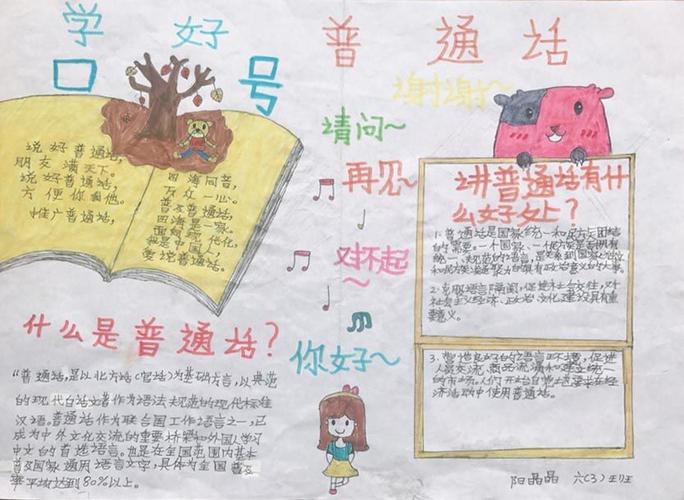 学好普通话
口号
说好普通话,
朋友满天下。
说好普通话,
方便你我他。
推广普通话,
四海同音,
万众一心。
普及普通话,
四海是一家。
面向现代化,
我是中国人,
爱说普通话。
谢谢~
请问~
再见~
对不起~
你好~
什么是普通话?
"普通话,是以北方话(官话)为基础方言,以典范
的现代白话文著作为语法规范的现代标准
汉语。普通话作为联合国工作语言之一,已
成为中外文化交流的重要桥梁和外国人学习
中文的首选语言。
普及国家通用语言文字,具体为全国普
率平均达到80%以上。
讲普通话有什
么好处?
1. 普通话是国家统一和民族团结
的需要。一个国家、一个民族
统一、规范的语言,是关系到国家
2. 克服语言隔阂,促进社会交往,对
社会主义经济、政治、文化建设具有重
要意义。
3. 营造良好的语言环境,促进
人员交流,商品流通和建立统一
的市场。
济活动中使用普通话。
阳晶晶 六(3)班